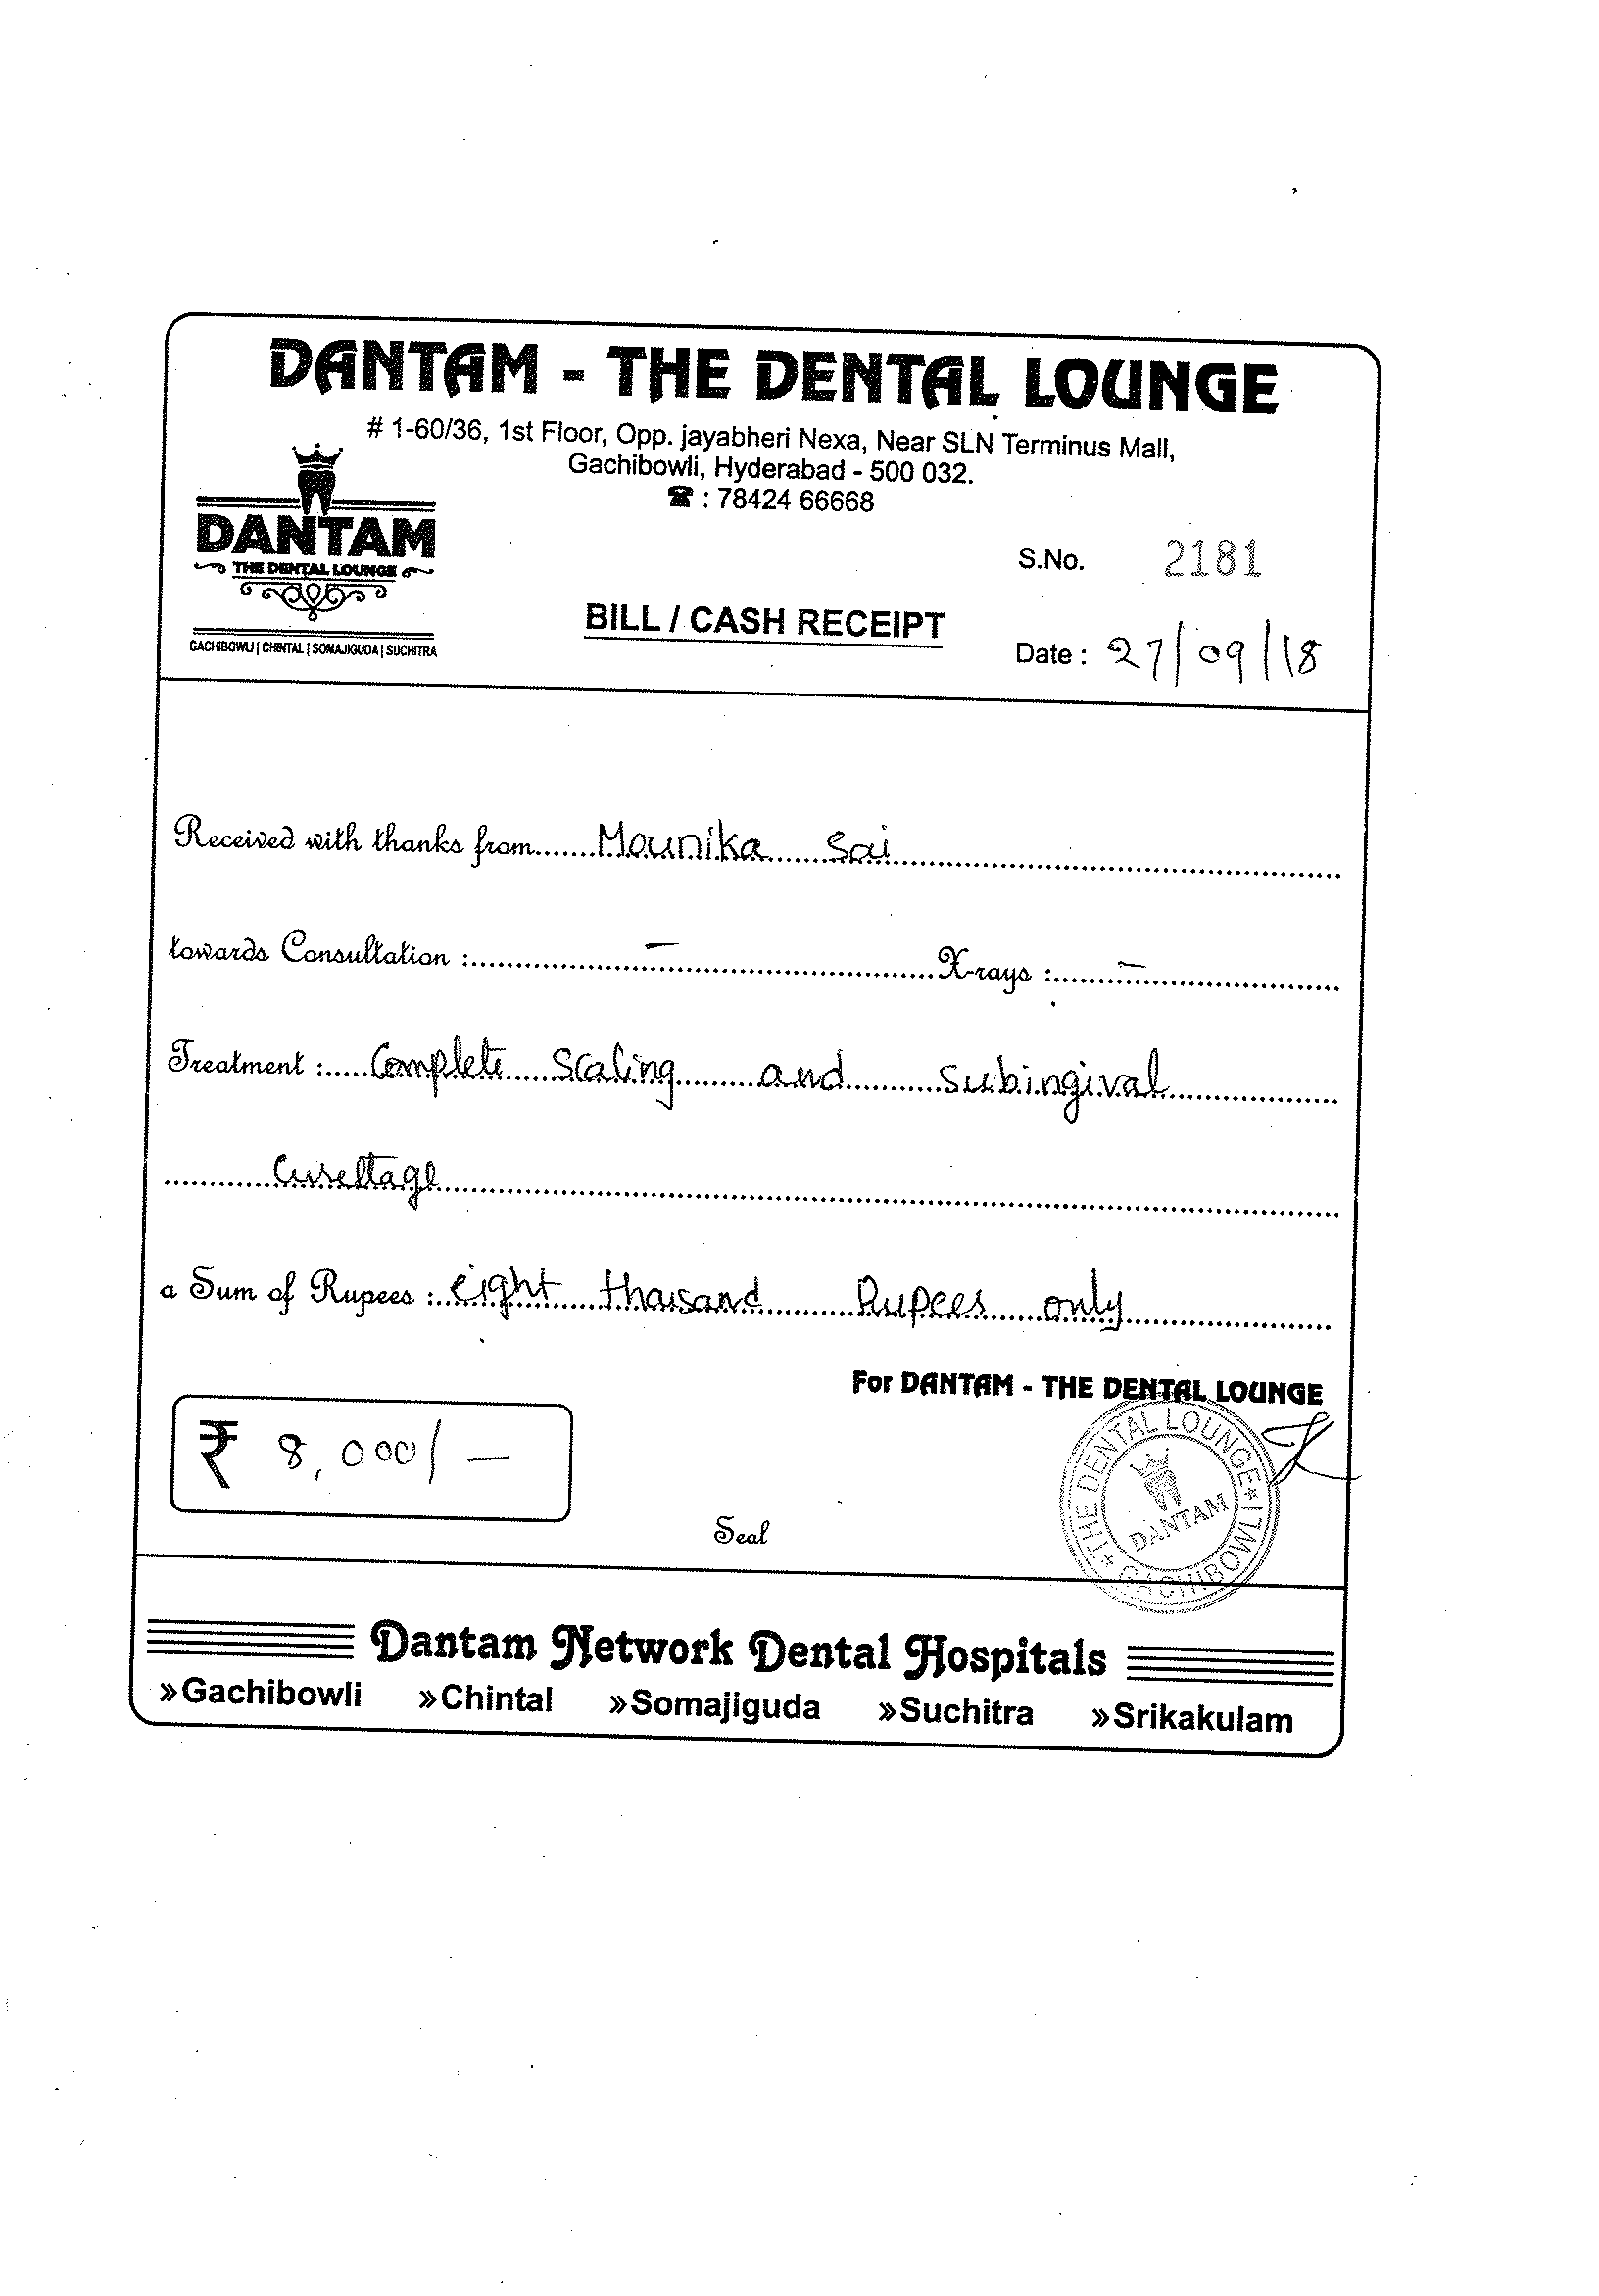 DANTAM - THE DENTAL LOUNGE
# 1-60/36, 1st Floor, Opp. jayabheri Nexa, Near SLN Terminus Mall,
Gachibowli, Hyderabad - 500 032.
☎ : 78424 66668
DANTAM
THE DENTAL LOUNGE
GACHIBOWLI | CHINTAL | SOMAJIGUDA | SUCHITRA
S.No. 2181
BILL / CASH RECEIPT
Date : 27/09/18
Received with thanks from Mounika Sai
towards Consultation : — X-rays : —
Treatment : Complete Scaling and subingival
Curettage
a Sum of Rupees : eight thousand Rupees only
For DANTAM - THE DENTAL LOUNGE
₹ 8,000/-
THE DENTAL LOUNGE
DANTAM
GACHIBOWLI
Seal
Dantam Network Dental Hospitals
»Gachibowli »Chintal »Somajiguda »Suchitra »Srikakulam